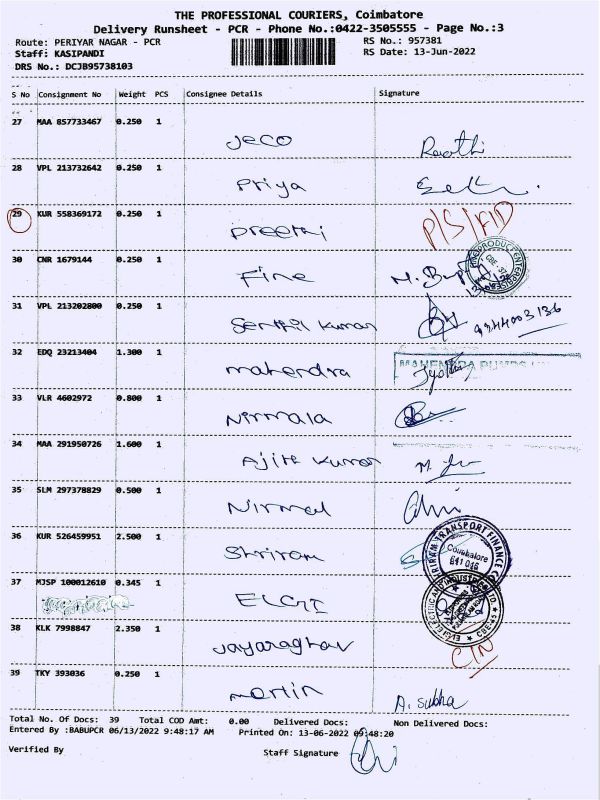 THE PROFESSIONAL COURIERS, Coimbatore
Delivery Runsheet - PCR - Phone No.:0422-3505555 - Page No.:3
Route: PERIYAR NAGAR - PCR RS No.: 957381
Staff: KASIPANDI RS Date: 13-Jun-2022
DRS No.: DCJB95738103
S No Consignment No Weight PCS Consignee Details Signature
27 MAA 857733467 0.250 1
Jeco
28 VPL 213732642 0.250 1
Priya
29 KUR 558369172 0.250 1 P/S/FID
Preethi
30 CNR 1679144 0.250 1
Fine
31 VPL 213202800 0.250 1
Senthil Kumar 9344003136
32 EDQ 23213404 1.300 1
mahendra MAHENDRA PUMPS
33 VLR 4602972 0.800 1
Nirmala
34 MAA 291950726 1.600 1
Ajith Kumar
35 SLM 297378829 0.500 1
Nirmal
36 KUR 526459951 2.500 1
Shriram TRANSPORT FINANCE Coimbatore 641 016
37 MJSP 100012610 0.345 1
ELGI
38 KLK 7998847 2.350 1
Jayaraghav
39 TKY 393036 0.250 1
martin A. Subha
Total No. Of Docs: 39 Total COD Amt: 0.00 Delivered Docs: Non Delivered Docs:
Entered By :BABUPCR 06/13/2022 9:48:17 AM Printed On: 13-06-2022 09:48:20
Verified By Staff Signature